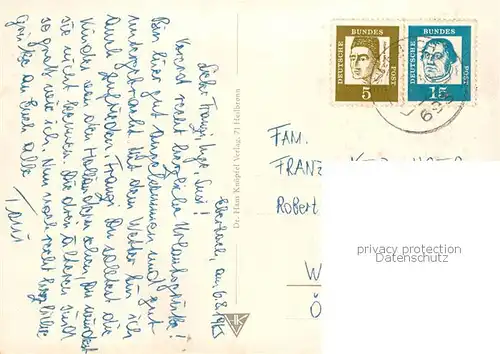 Eberbach, am 6.8.1965
Liebe Franzi, Inge, Susi!
Vorerst recht herzliche Urlaubsgrüße!
Bin hier gut angekommen und gut
untergebracht. Mit dem Wetter bin ich
auch zufrieden. Franzi, Du solltest die
Kinder von der sehen, Du würdest
sie nicht kennen. Die drei älteren sind
so groß wie ich. Nun noch recht herzliche
Grüße an Euch alle
Toni
Dr. Hans Knüpfel Verlag, 71 Heilbronn
HK
DEUTSCHE BUNDES POST
5
DEUTSCHE BUNDES POST
15
693
FAM.
FRANZ
Robert
W
Ö
privacy protection
Datenschutz